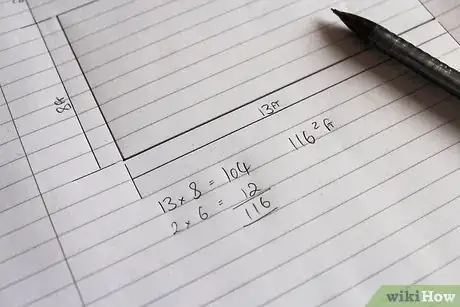 8ft
13ft
13 x 8 = 104
116² ft
2 x 6 = 12
116
wikiHow